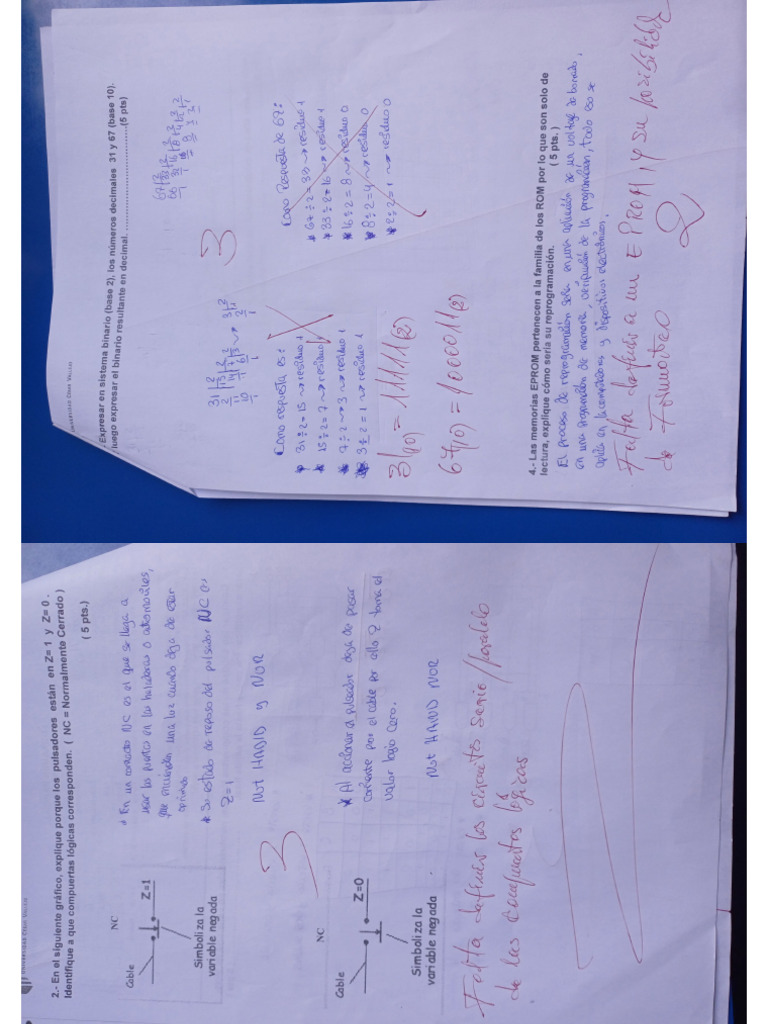 UNIVERSIDAD CÉSAR VALLEJO
Expresar en sistema binario (base 2), los números decimales 31 y 67 (base 10).
luego expresar el binario resultante en decimal. (5 pts)
3
Como respuesta es:
* 31÷2 = 15 → residuo 1
* 15÷2 = 7 → residuo 1
* 7÷2 → 3 → residuo 1
* 3÷2 = 1 → residuo 1
Como Respuesta de 67:
* 67÷2 = 33 → residuo 1
* 33÷2 = 16 → residuo 1
* 16÷2 = 8 → residuo 0
* 8÷2 = 4 → residuo 0
* 2÷2 = 1 → residuo 0
31(10) = 11111(2)
67(10) = 1000011(2)
4.- Las memorias EPROM pertenecen a la familia de los ROM por lo que son solo de
lectura, explique cómo sería su reprogramación. ( 5 pts. )
El proceso de reprogramación sería en una aplicación de un voltaje de borrado,
en una programación de memoria, verificación de la programación, todo eso se
aplica en la computadoras y dispositivos electrónicos.
Falta definir a un EPROM, y su posibilidad
de
2
UNIVERSIDAD CÉSAR VALLEJO
2.- En el siguiente gráfico, explique porque los pulsadores están en Z= 1 y Z= 0 .
Identifique a que compuertas lógicas corresponden. ( NC = Normalmente Cerrado )
( 5 pts.)
NC
Cable
Z=1
Simboliza la
variable negada
* En un contacto NC es el que se llega a
usar las puertas en las heladeras o automóviles,
que encienden una luz cuando deja de estar
oprimido
* Su estado de reposo del pulsador NC es
Z=1
Not HAND y NOR
3
NC
Cable
Z=0
Simboliza la
variable negada
* Al accionar a pulsador deja de pasar
corriente por el cable por ello Z toma el
valor logio Cero.
Not HAND NOR
Falta definir los circuitos serie/paralelo
de las compuertas lógicas